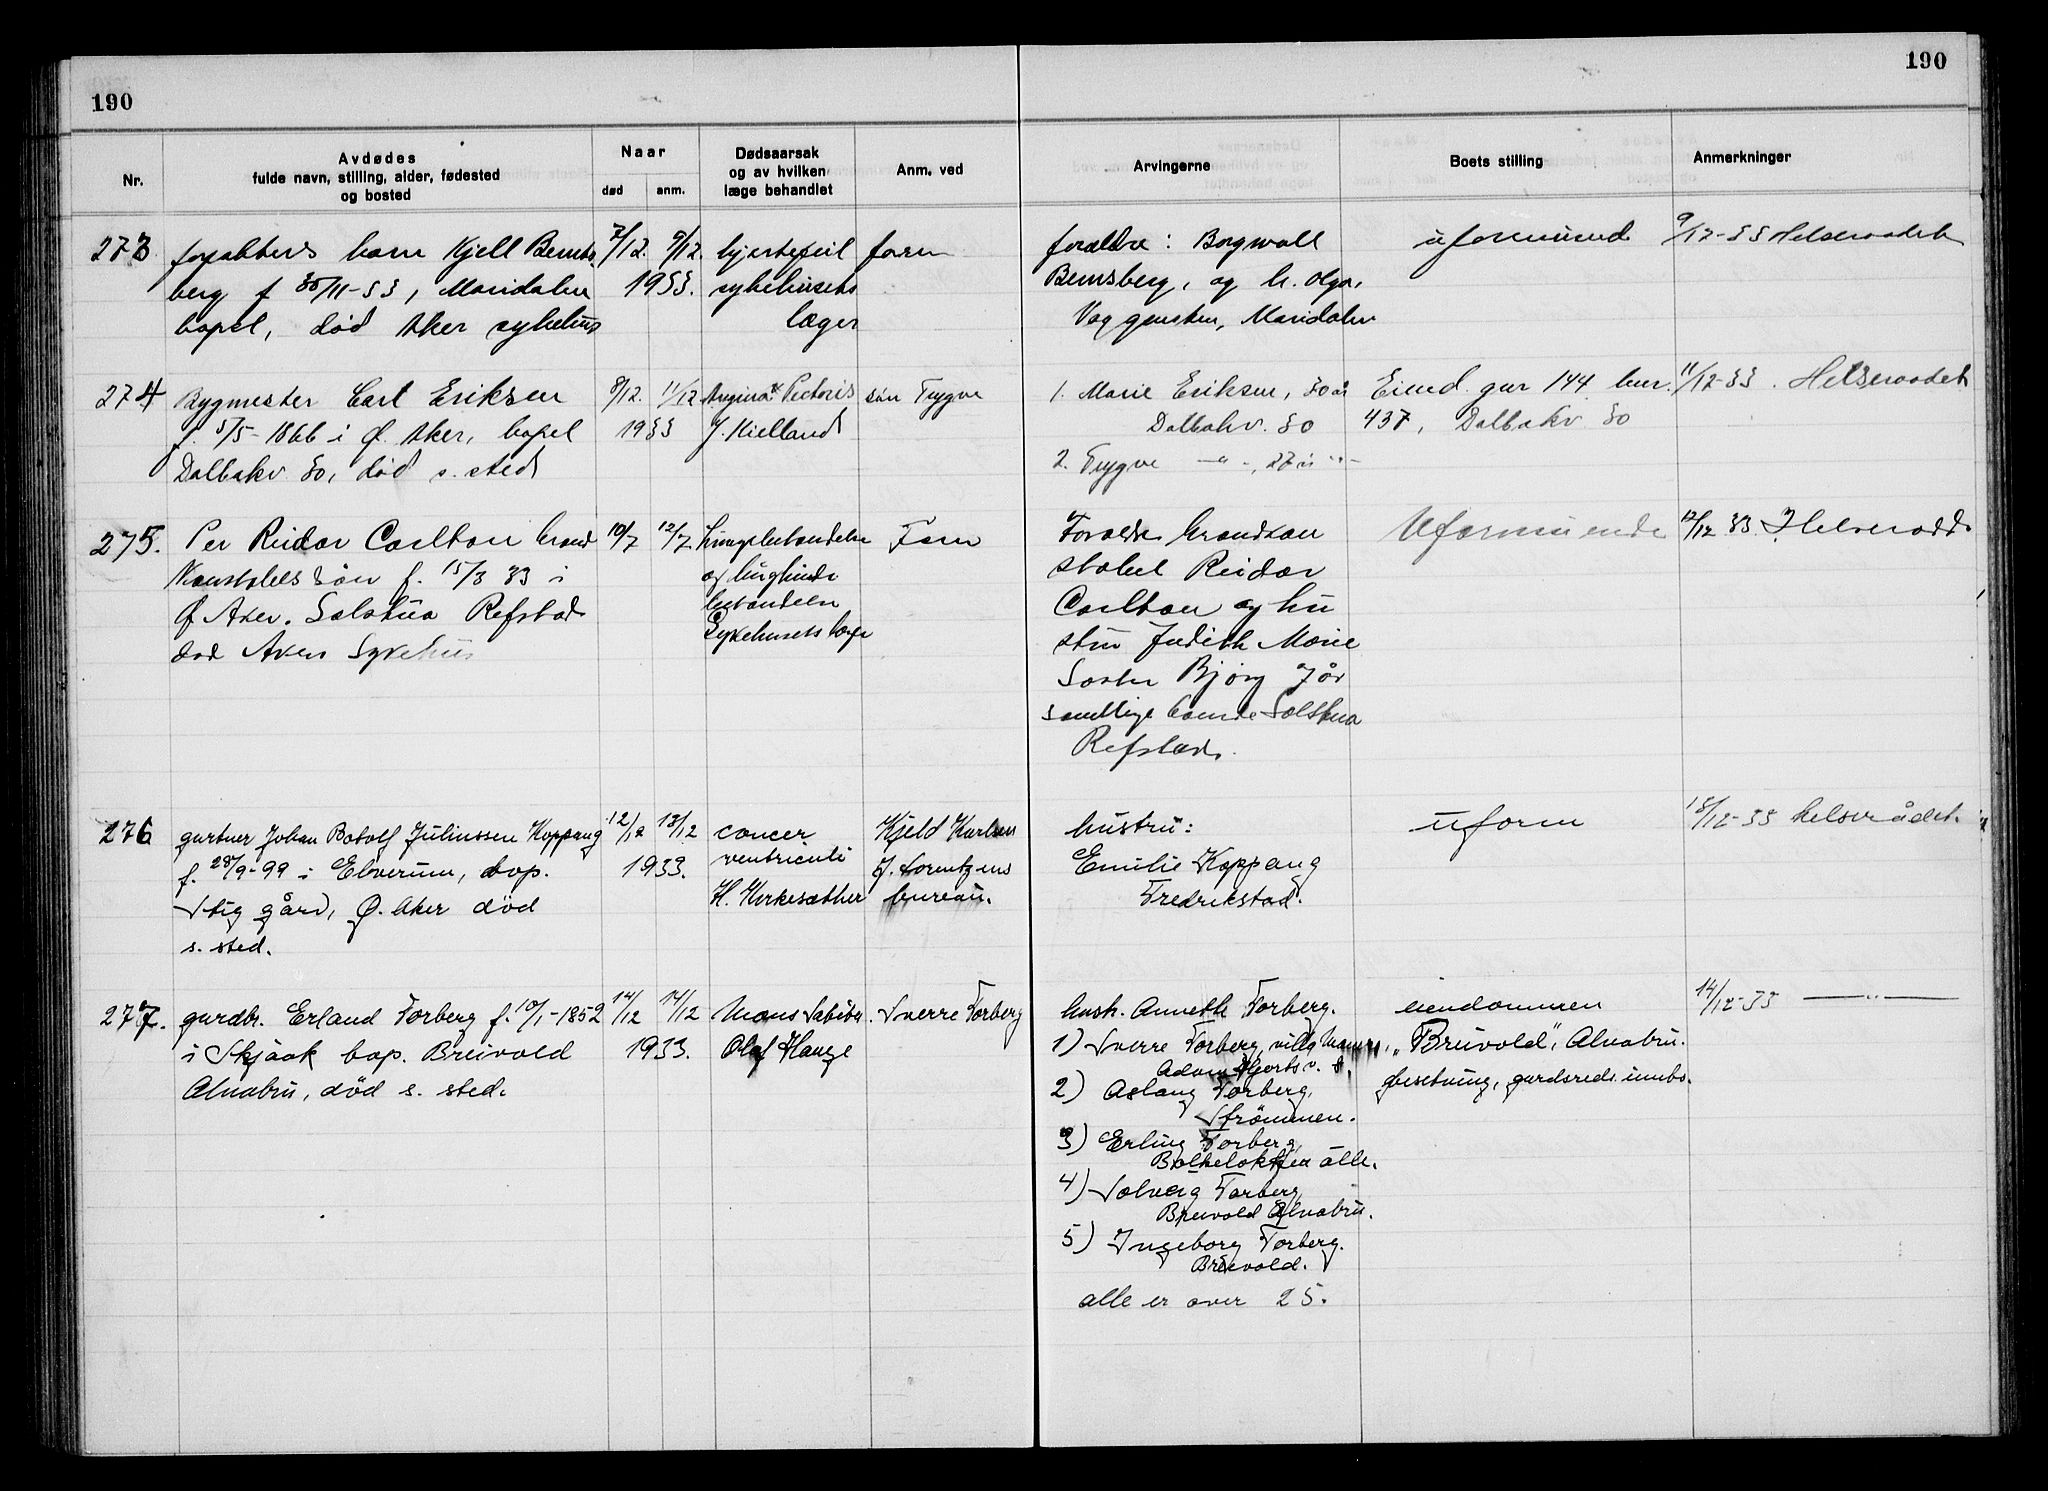 190
190
Nr.
Avdødes
fulde navn, stilling, alder, fødested
og bosted
Naar
død
anm.
Dødsaarsak
og av hvilken
læge behandlet
Anm. ved
Arvingerne
Boets stilling
Anmerkninger
273
barn Kjell
berg f 30/11-33, Maridalen
bopel, død Aker sykehus
7/12. 9/12.
1933.
hjertefeil
sykehusets
læger
faren
foreldre: Borgwall
Bernsberg, og h. Olga,
Maridalen
uformuend
9/12-33 Helseraadet
274
Bygmester Carl Eriksen
f. 5/5-1866 i Ø. Aker, bopel
Dalbakv. 30, død s. sted
8/12. 11/12
1933
Angina Pectoris
J. Kielland
søn Trygve
1. Marie Eriksen, 30 år
Dalbakv. 30
2. Trygve -"-, 27 år -"-
Eiend. gnr 144 bnr.
437, Dalbakv 30
11/12-33. Helseraadet
275.
Per Reidar Carlton brand
konstabels søn f. 15/3 33 i
Ø Aker. Solstua Refstad
død Aker Sykehus
10/7 12/7
Lungebetendelse
og
betendelse
Sykehusets læge
Faren
Foreldre brandkon
stabel Reidar
Carlton og hu
stru Judith Marie
Søster Bjørg 7 år
samtlige boende Solstua
Refstad.
Uformuende
12/12 33. Helseradd
276
gartner Johan Botolf Juliussen Koppang
f. 28/9-99 i Elverum, bop.
Stig gård, Ø. Aker död
s. sted.
12/12 13/12
1933.
cancer
ventriculi
H. Kirkesæther
Kjeld Karlsen
J. Lorentzens
bureau.
hustru:
Emilie Koppang
Fredrikstad.
uform
18/12-33 helserådet.
277.
gardbr. Erland Torberg f. 10/1-1852
i Skjaak bop. Breivold
Alnabru, död s. sted.
14/12 14/12
1933.
Olaf Hauge
Sverre Torberg
hustr. Annette Torberg.
1) Sverre Torberg, villa
Adam Hjorts v. 8.
2) Aslaug Torberg,
Strömmen.
3) Erling Torberg,
alle.
4) Solveig Torberg,
Breivold Alnabru.
5) Ingeborg Torberg.
Breivold.
alle er over 25.
eiendommen
„Breivold", Alnabru.
besetning, gardsreds. innbo.
14/12-33 —"—